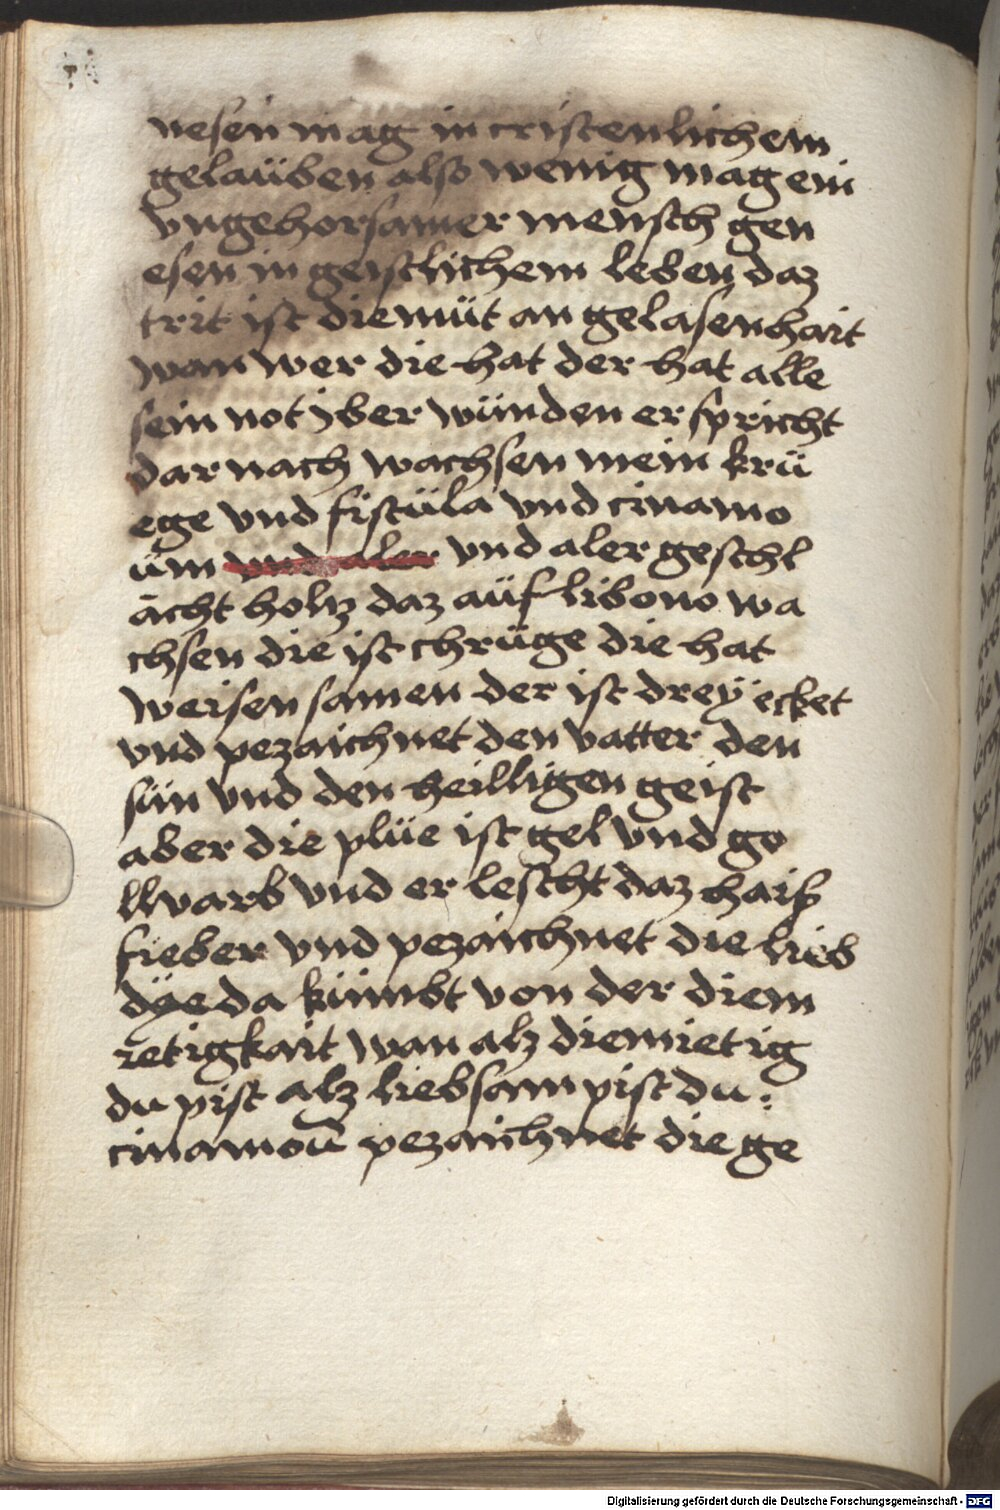 nesen mag in cristenlichem
gelaüben also wenig mag ein
vngehorsamer mensch gen
esen in geistlichem leben daz
trit ist diemüt an gelasenhait
wan wer die hat der hat alle
sein not yber wünden er spricht
dar nach wachsen mein krü
ege vnd fistüla vnd cinamo
üm vnd aler vnd aler geschl
ächt holtz daz aüf libono wa
chsen die ist chrüge die hat
weisen samen der ist dreÿ ecket
vnd pezaichnet den vatter den
sün vnd den heilligen geist
aber die plüe ist gel vnd go
llvarb vnd er lescht daz haiß
fieber vnd pezaichnet die lieb
dÿe da kümbt von der diem
ietigkait wan alz diemietig
du pist alz liebsam pist du :
cinamoū pezaichnet die ge
Digitalisierung gefördert durch die Deutsche Forschungsgemeinschaft - DFG